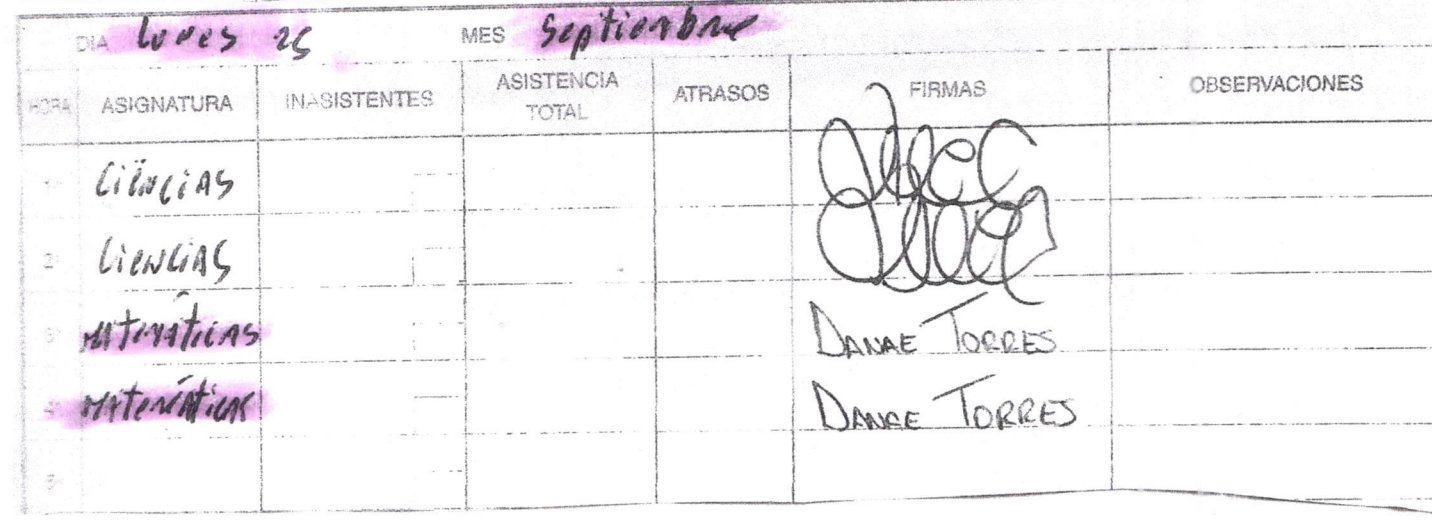 DIA Lunes 25 MES Septiembre
HORA ASIGNATURA INASISTENTES ASISTENCIA TOTAL ATRASOS FIRMAS OBSERVACIONES
1ª Ciencias
2ª Ciencias
3ª Matemáticas DANAE TORRES
4ª Matemáticas DANAE TORRES
5ª